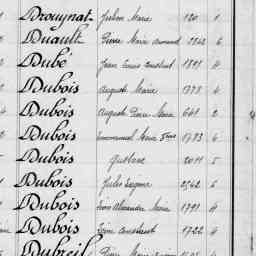 Drouynat Julien Marie 120 1
Duault Pierre Marie Armand 2842 6
Dubé Jean Louis Constant 1891 4
Dubois Auguste Marie 1778 4
Dubois Auguste Pierre Marie 641 2
Dubois Emmanuel Marie 1783 6
Dubois Gustave 2011 5
Dubois Jules Eugène 2542 6
Dubois Alexandre Marie 1791 4
Dubois Constant 1722 4
Dubreil Pierre Marie